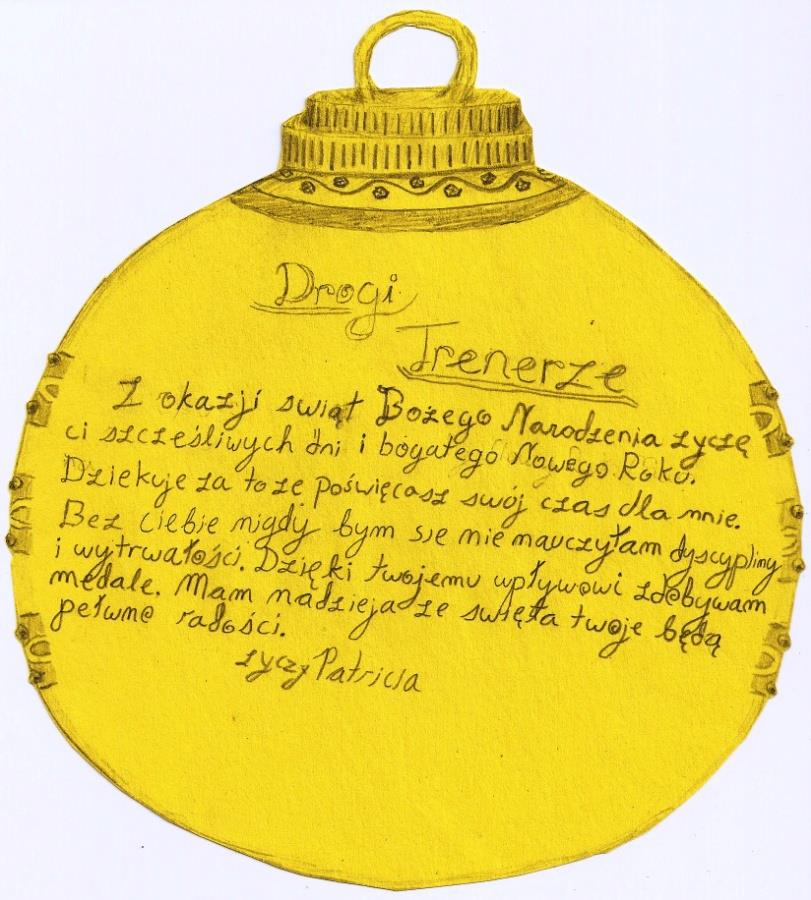 Drogi
Trenerze
Z okazji swiąt Bożego Narodzenia życzę
ci szcześliwych dni i bogatego Nowego Roku.
Dziekuje za to że poświęcasz swój czas dla mnie.
Bez Ciebie nigdy bym sie nie nauczyłam dyscypliny
i wytrwałości. Dzięki twojemu wpływowi zdobywam
medale. Mam nadzieja że swięta twoje będą
pełwne radości.
życzy Patricia